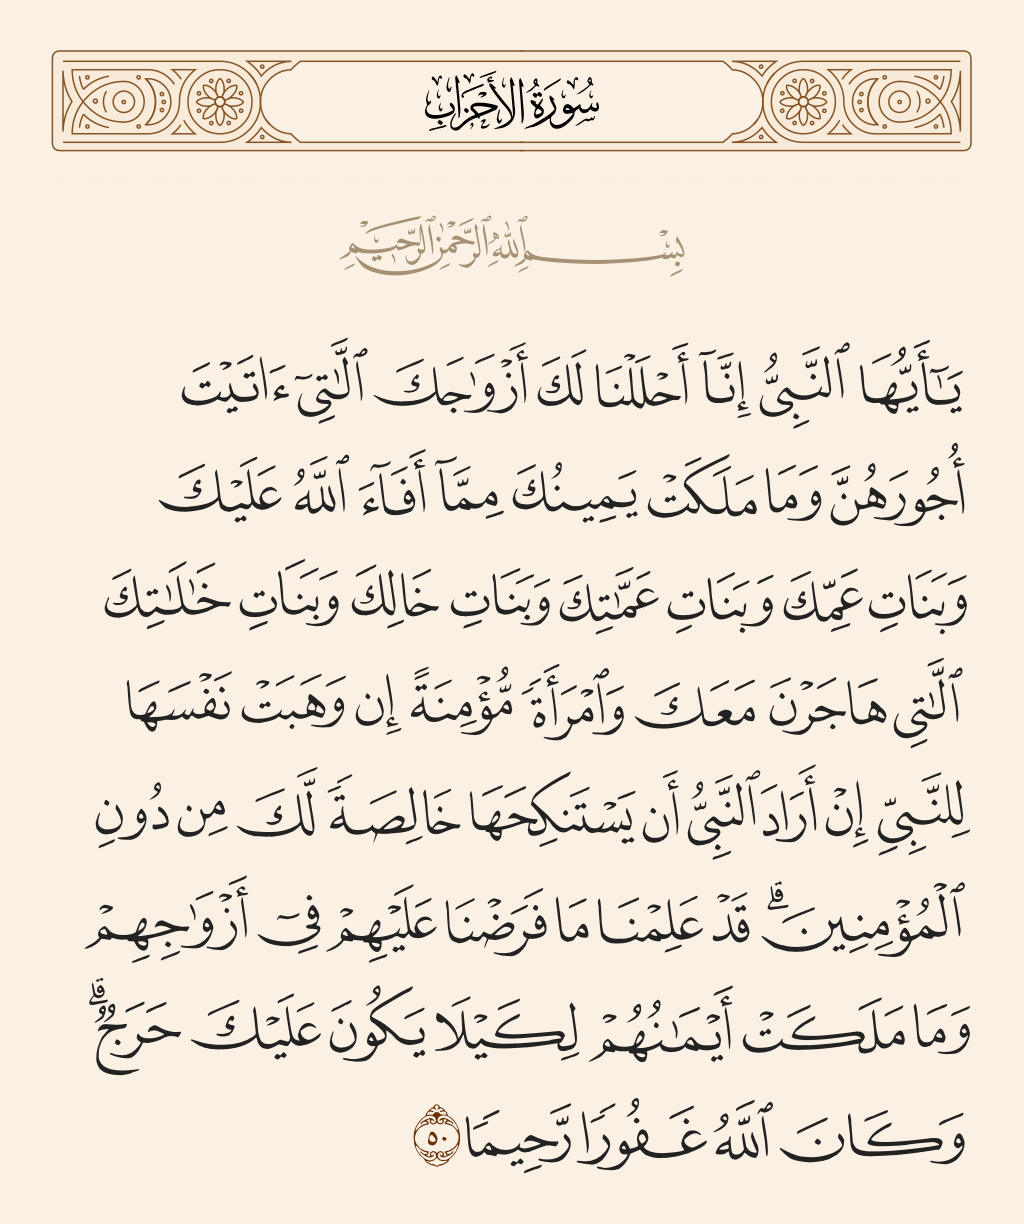 سُورَةُ الأَحْزَابِ
بِسْمِ ٱللَّهِ ٱلرَّحْمَٰنِ ٱلرَّحِيمِ
يَٰٓأَيُّهَا ٱلنَّبِىُّ إِنَّآ أَحْلَلْنَا لَكَ أَزْوَٰجَكَ ٱلَّٰتِىٓ ءَاتَيْتَ
أُجُورَهُنَّ وَمَا مَلَكَتْ يَمِينُكَ مِمَّآ أَفَآءَ ٱللَّهُ عَلَيْكَ
وَبَنَاتِ عَمِّكَ وَبَنَاتِ عَمَّٰتِكَ وَبَنَاتِ خَالِكَ وَبَنَاتِ خَٰلَٰتِكَ
ٱلَّٰتِى هَاجَرْنَ مَعَكَ وَٱمْرَأَةً مُّؤْمِنَةً إِن وَهَبَتْ نَفْسَهَا
لِلنَّبِىِّ إِنْ أَرَادَ ٱلنَّبِىُّ أَن يَسْتَنكِحَهَا خَالِصَةً لَّكَ مِن دُونِ
ٱلْمُؤْمِنِينَ ۗ قَدْ عَلِمْنَا مَا فَرَضْنَا عَلَيْهِمْ فِىٓ أَزْوَٰجِهِمْ
وَمَا مَلَكَتْ أَيْمَٰنُهُمْ لِكَيْلَا يَكُونَ عَلَيْكَ حَرَجٌ ۗ
وَكَانَ ٱللَّهُ غَفُورًا رَّحِيمًا ٥٠